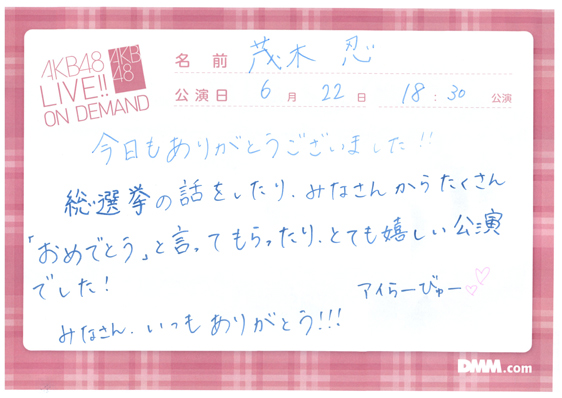 AKB48
LIVE!!
ON DEMAND
AKB
48
名前 茂木忍
公演日 6月22日 18:30 公演
今日もありがとうございました!!
総選挙の話をしたり、みなさんからたくさん
「おめでとう」と言ってもらったり、とても嬉しい公演
でした!
アイらーびゅー
みなさん、いつもありがとう!!!
DMM.com